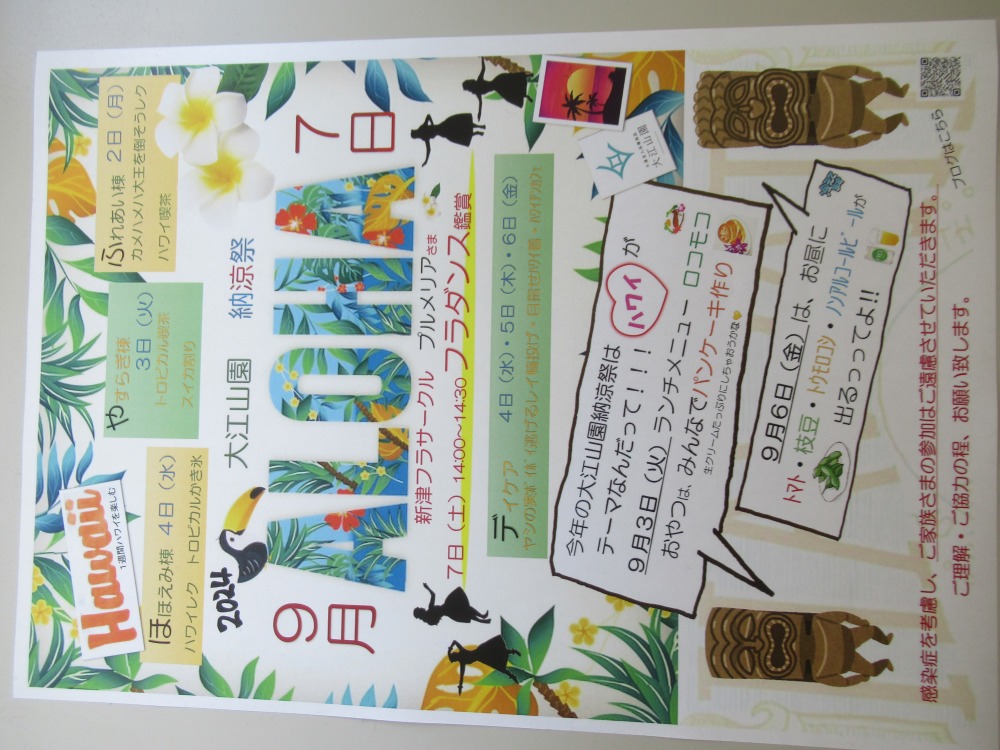 Hawaii
1週間ハワイを楽しむ
ほほえみ棟 4日(水)
ハワイレク トロピカルかき氷
やすらぎ棟
3日(火)
トロピカル喫茶
スイカ割り
ふれあい棟 2日(月)
カメハメハ大王を倒そうレク
ハワイ喫茶
2024 大江山園 納涼祭
9月 ALOHA 7日
新津フラサークル プルメリアさま
7日(土)14:00~14:30 フラダンス鑑賞
デイケア 4日(水)・5日(木)・6日(金)
大江山園
今年の大江山園納涼祭は ハワイ が
テーマなんだって!!!
9月3日(火)ランチメニュー ロコモコ
おやつは、みんなでパンケーキ作り
生クリームたっぷりにしちゃおうかな
9月6日(金)は、お昼に
トマト・枝豆・トウモロコシ・ノンアルコールビールが
出るってよ!!
ブログはこちら
感染症を考慮し、ご家族さまの参加はご遠慮させていただきます。
ご理解・ご協力の程、お願い致します。